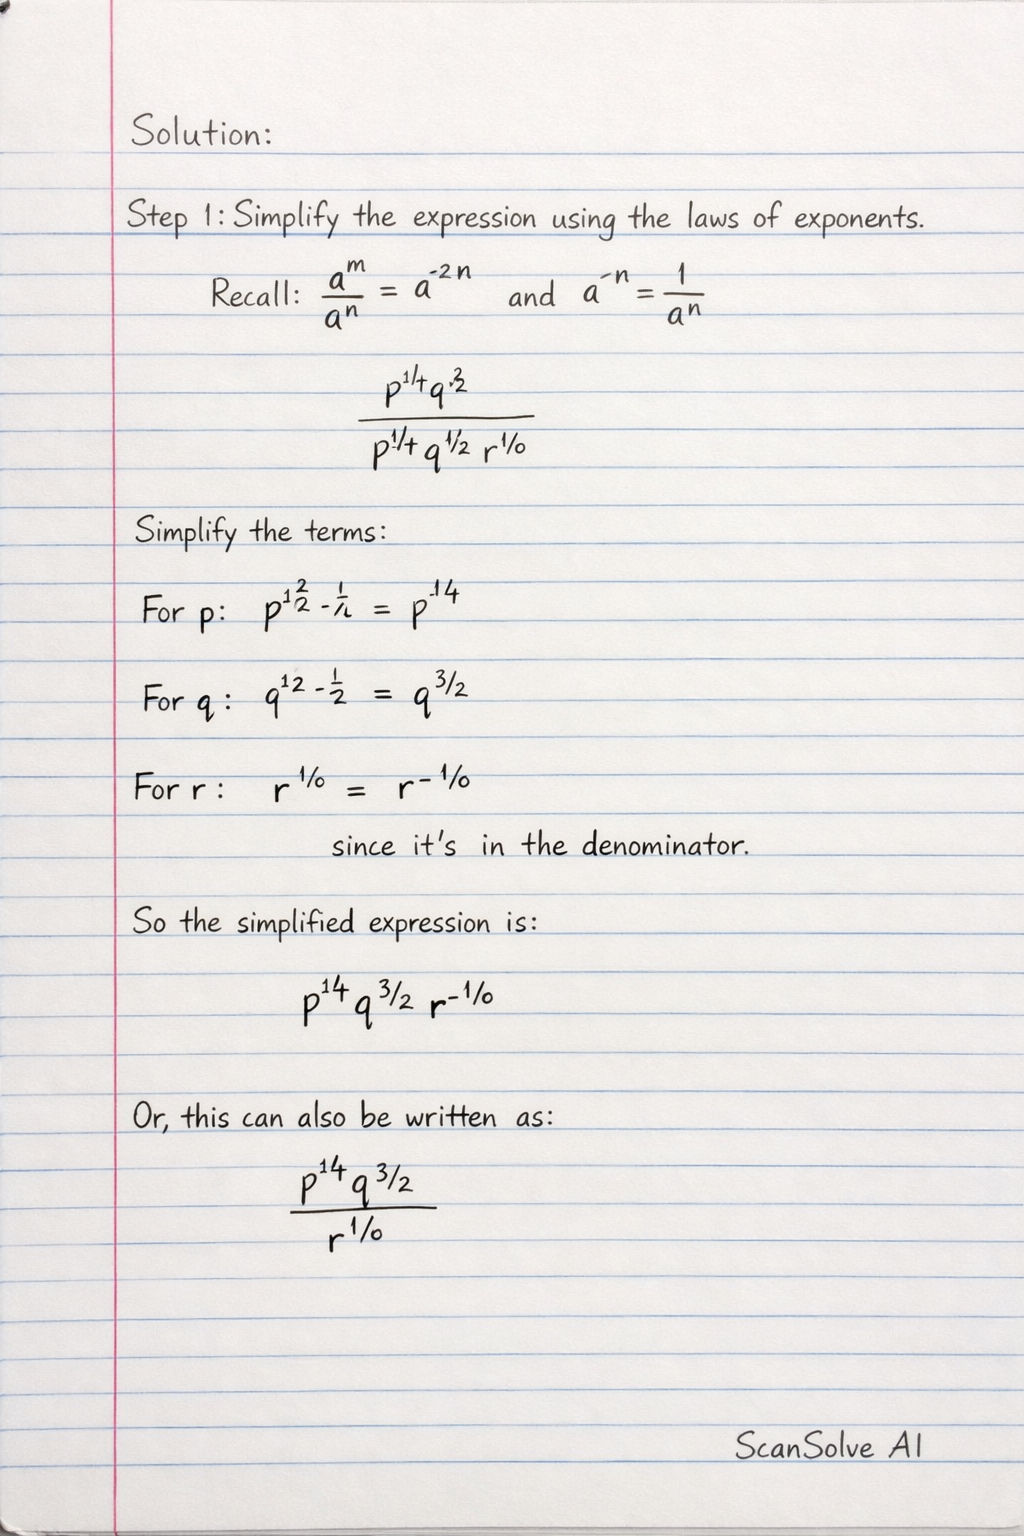 Solution:
Step 1: Simplify the expression using the laws of exponents.
Recall: a^m/a^n = a^-2n and a^-n = 1/a^n
p^1/4 q^2
p^1/4 q^1/2 r^1/0
Simplify the terms:
For p: = p^-14
For q: q^12 - 1/2 = q^3/2
For r: r^1/0 = r^-1/0
since it's in the denominator.
So the simplified expression is:
p^14 q^3/2 r^-1/0
Or, this can also be written as:
p^14 q^3/2
r^1/0
ScanSolve AI